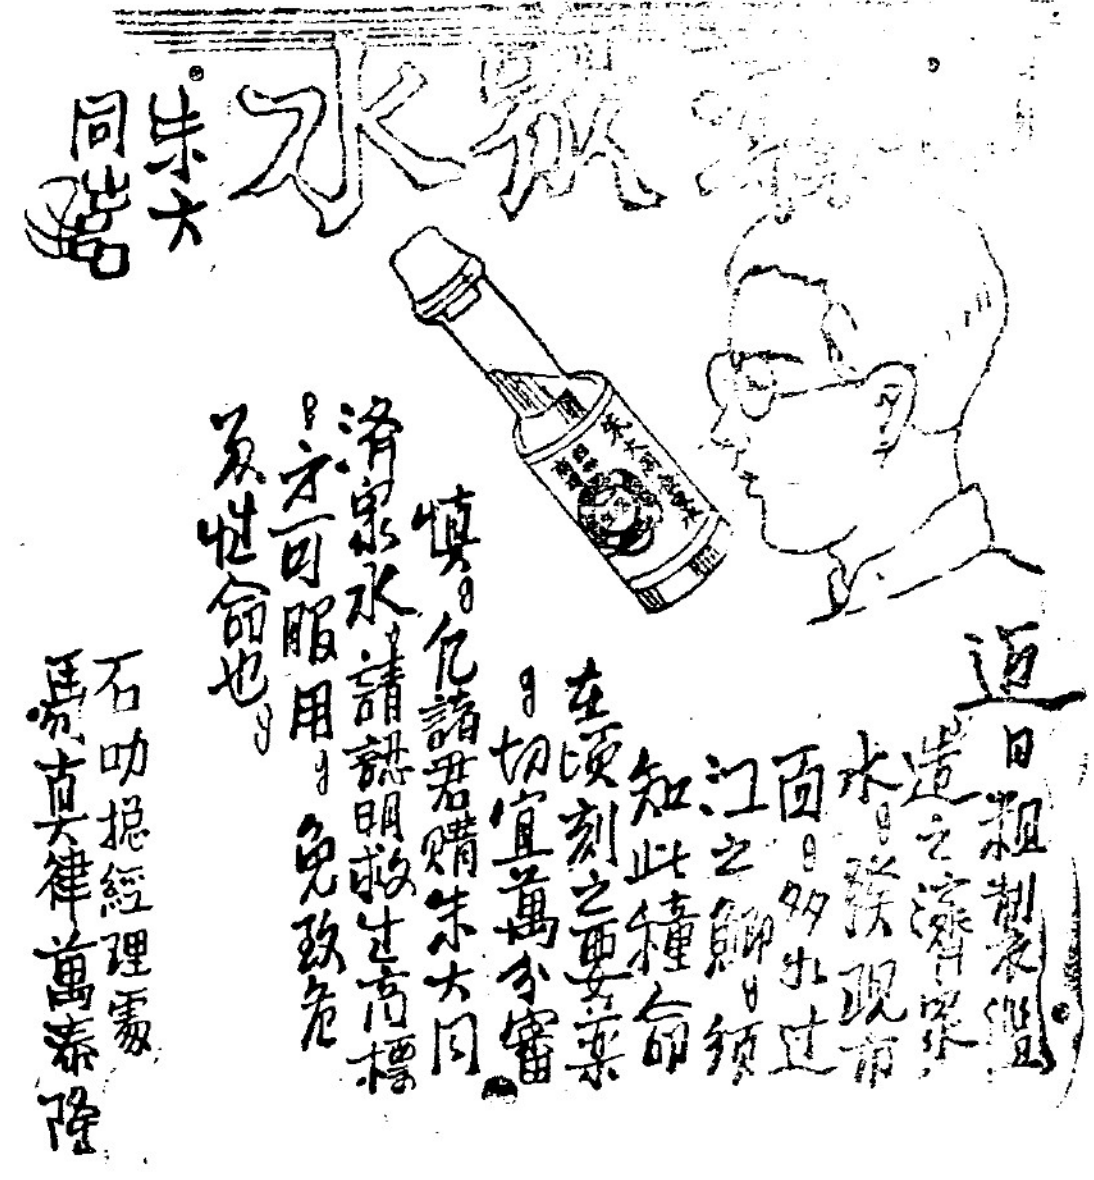 濟眾水
朱大
同造
近日粗製濫
造之濟眾
水，發現市
面，多如过
江之鯽，須
知此種命
在頃刻之要藥
，切宜萬分審
慎，凡諸君購朱大同
濟眾水，請認明救生商標
，方可服用，免致危
及性命也。
石叻總經理處
馬大律萬泰隆